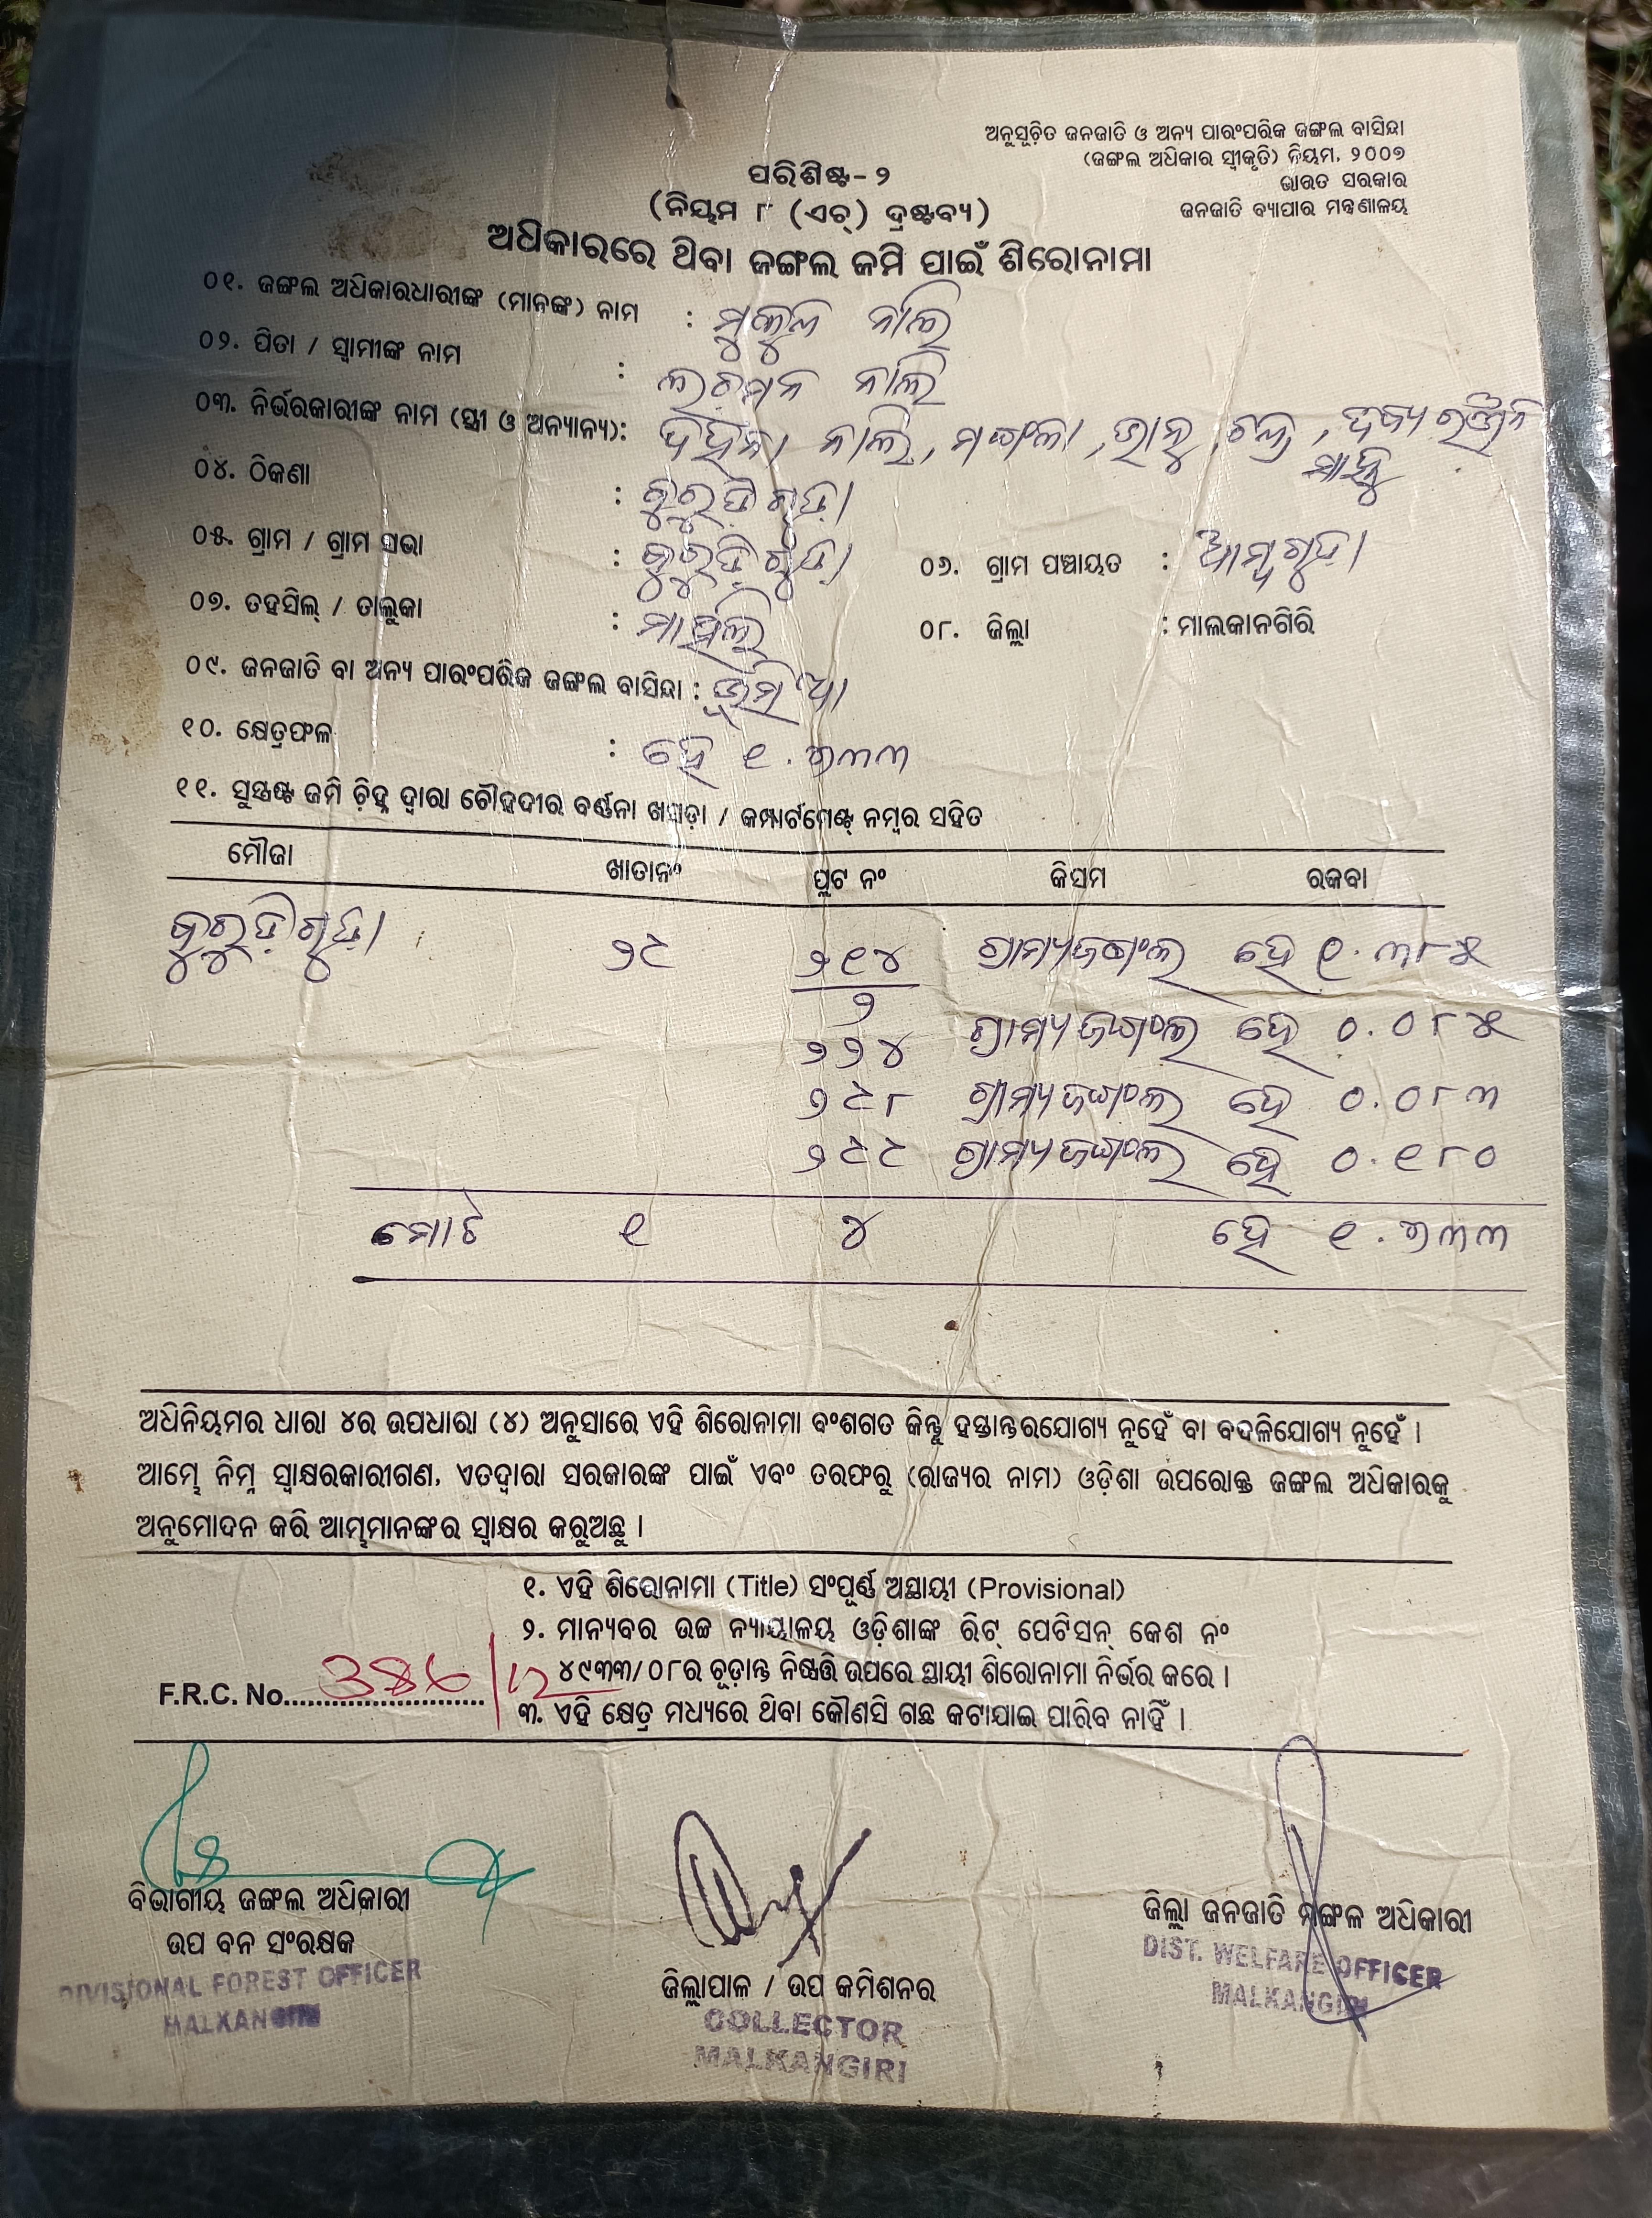 ଅନୁସୂଚିତ ଜନଜାତି ଓ ଅନ୍ୟ ପାରଂପରିକ ଜଙ୍ଗଲ ବାସିନ୍ଦା
(ଜଙ୍ଗଲ ଅଧିକାର ସ୍ୱୀକୃତି) ନିୟମ, ୨୦୦୭
ଭାରତ ସରକାର
ଜନଜାତି ବ୍ୟାପାର ମନ୍ତ୍ରଣାଳୟ
ପରିଶିଷ୍ଟ-୨
(ନିୟମ ୮ (ଏଚ୍) ଦ୍ରଷ୍ଟବ୍ୟ)
ଅଧିକାରରେ ଥିବା ଜଙ୍ଗଲ ଜମି ପାଇଁ ଶିରୋନାମା
୦୧. ଜଙ୍ଗଲ ଅଧିକାରଧାରୀଙ୍କ (ମାନଙ୍କ) ନାମ :
୦୨. ପିତା / ସ୍ୱାମୀଙ୍କ ନାମ :
୦୩. ନିର୍ଭରକାରୀଙ୍କ ନାମ (ସ୍ତ୍ରୀ ଓ ଅନ୍ୟାନ୍ୟ):
୦୪. ଠିକଣା : କୁରୁଡ଼ିଗୁଡ଼ା
୦୫. ଗ୍ରାମ / ଗ୍ରାମ ସଭା : କୁରୁଡ଼ିଗୁଡ଼ା ୦୬. ଗ୍ରାମ ପଞ୍ଚାୟତ : ଆମ୍ବଗୁଡ଼ା
୦୭. ତହସିଲ୍ / ତାଲୁକା : ମାଥିଲି ୦୮. ଜିଲ୍ଲା : ମାଲକାନଗିରି
୦୯. ଜନଜାତି ବା ଅନ୍ୟ ପାରଂପରିକ ଜଙ୍ଗଲ ବାସିନ୍ଦା : ଭୂମିଆ
୧୦. କ୍ଷେତ୍ରଫଳ : ହେ ୧.୭୩୩
୧୧. ସୁସ୍ପଷ୍ଟ ଜମି ଚିହ୍ନ ଦ୍ୱାରା ଚୌହଦୀର ବର୍ଣ୍ଣନା ଖସଡ଼ା / କମ୍ପାର୍ଟମେଣ୍ଟ୍ ନମ୍ବର ସହିତ
ମୌଜା ଖାତାନଂ ପ୍ଲଟ ନଂ କିସମ ରକବା
କୁରୁଡ଼ିଗୁଡ଼ା ୨୯ ୨୧୪ ଗ୍ରାମ୍ୟଜଙ୍ଗଲ ହେ ୧.୩୮୫
୨
୨୨୪ ଗ୍ରାମ୍ୟଜଙ୍ଗଲ ହେ ୦.୦୮୫
୨୯୮ ଗ୍ରାମ୍ୟଜଙ୍ଗଲ ହେ ୦.୦୮୩
୨୯୯ ଗ୍ରାମ୍ୟଜଙ୍ଗଲ ହେ ୦.୧୮୦
ମୋଟ ୧ ୪ ହେ ୧.୭୩୩
ଅଧିନିୟମର ଧାରା ୪ର ଉପଧାରା (୪) ଅନୁସାରେ ଏହି ଶିରୋନାମା ବଂଶଗତ କିନ୍ତୁ ହସ୍ତାନ୍ତରଯୋଗ୍ୟ ନୁହେଁ ବା ବଦଳିଯୋଗ୍ୟ ନୁହେଁ ।
ଆମ୍ଭେ ନିମ୍ନ ସ୍ୱାକ୍ଷରକାରୀଗଣ, ଏତଦ୍ୱାରା ସରକାରଙ୍କ ପାଇଁ ଏବଂ ତରଫରୁ (ରାଜ୍ୟର ନାମ) ଓଡ଼ିଶା ଉପରୋକ୍ତ ଜଙ୍ଗଲ ଅଧିକାରକୁ
ଅନୁମୋଦନ କରି ଆମ୍ଭମାନଙ୍କର ସ୍ୱାକ୍ଷର କରୁଅଛୁ ।
୧. ଏହି ଶିରୋନାମା (Title) ସଂପୂର୍ଣ୍ଣ ଅସ୍ଥାୟୀ (Provisional)
୨. ମାନ୍ୟବର ଉଚ୍ଚ ନ୍ୟାୟାଳୟ ଓଡ଼ିଶାଙ୍କ ରିଟ୍ ପେଟିସନ୍ କେଶ ନଂ
୪୯୩୩/୦୮ର ଚୂଡ଼ାନ୍ତ ନିଷ୍ପତ୍ତି ଉପରେ ସ୍ଥାୟୀ ଶିରୋନାମା ନିର୍ଭର କରେ ।
F.R.C. No.
୩. ଏହି କ୍ଷେତ୍ର ମଧ୍ୟରେ ଥିବା କୌଣସି ଗଛ କଟାଯାଇ ପାରିବ ନାହିଁ ।
ବିଭାଗୀୟ ଜଙ୍ଗଲ ଅଧିକାରୀ
ଉପ ବନ ସଂରକ୍ଷକ
DIVISIONAL FOREST OFFICER
MALKANGIRI
ଜିଲ୍ଲାପାଳ / ଉପ କମିଶନର
COLLECTOR
MALKANGIRI
ଜିଲ୍ଲା ଜନଜାତି ମଙ୍ଗଳ ଅଧିକାରୀ
DIST. WELFARE OFFICER
MALKANGIRI